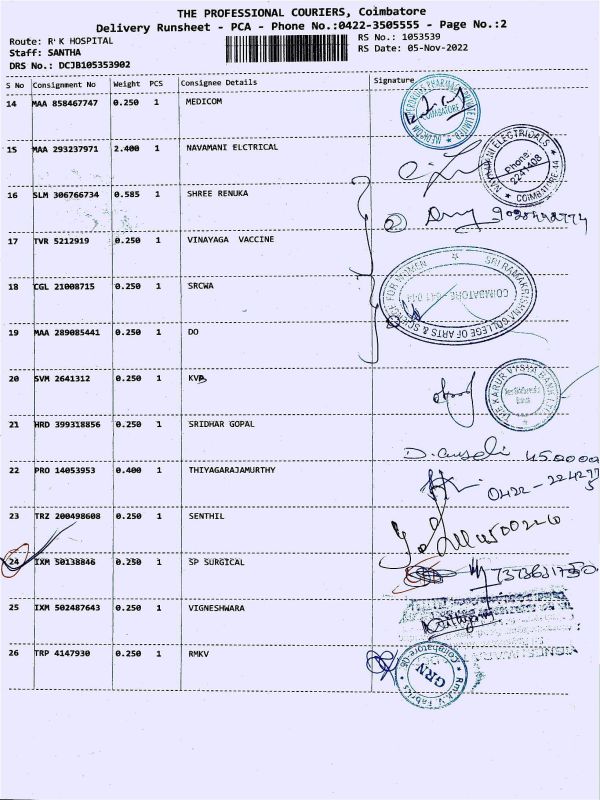 THE PROFESSIONAL COURIERS, Coimbatore
Delivery Runsheet - PCA - Phone No.:0422-3505555 - Page No.:2
Route: R'K HOSPITAL
Staff: SANTHA
DRS No.: DCJB105353902
RS No.: 1053539
RS Date: 05-Nov-2022
S No Consignment No Weight PCS Consignee Details Signature
14 MAA 858467747 0.250 1 MEDICOM
15 MAA 293237971 2.400 1 NAVAMANI ELCTRICAL
NAVAMANI ELECTRICALS
Phone: 2241408
COIMBATORE-44
16 SLM 306766734 0.585 1 SHREE RENUKA
17 TVR 5212919 0.250 1 VINAYAGA VACCINE
18 CGL 21008715 0.250 1 SRCWA
SRI RAMAKRISHNA COLLEGE OF ARTS & SCIENCE FOR WOMEN
19 MAA 289085441 0.250 1 DO
20 SVM 2641312 0.250 1 KVB
THE KARUR VYSYA BANK LTD
21 HRD 399318856 0.250 1 SRIDHAR GOPAL
22 PRO 14053953 0.400 1 THIYAGARAJAMURTHY
0422-224277
5
23 TRZ 200498608 0.250 1 SENTHIL
24 IXM 50138846 0.250 1 SP SURGICAL
25 IXM 502487643 0.250 1 VIGNESHWARA
26 TRP 4147930 0.250 1 RMKV
GRN
RmKV Fabrics